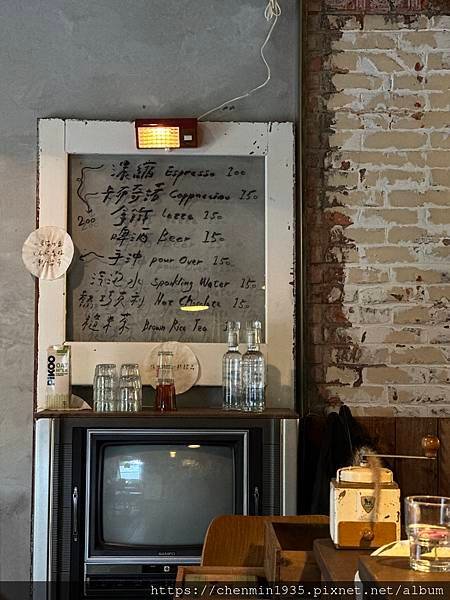 濃縮 Espresso 100
卡布奇諾 Cappuccino 150
拿鐵 Latte 150
200
啤酒 Beer 150
手沖 pour Over 150
泡水 sparkling Water 150
熱巧克利 Hot Chocolate 150
糙米茶 Brown Rice Tea
PIKOO
OAT
M!LK
SAMPO
https://chenmin1935.pixnet.net/album